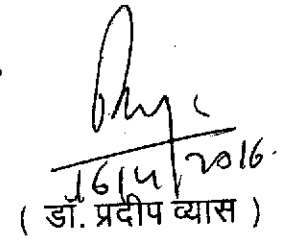 16/4/2016.
( डॉ. प्रदीप व्यास )